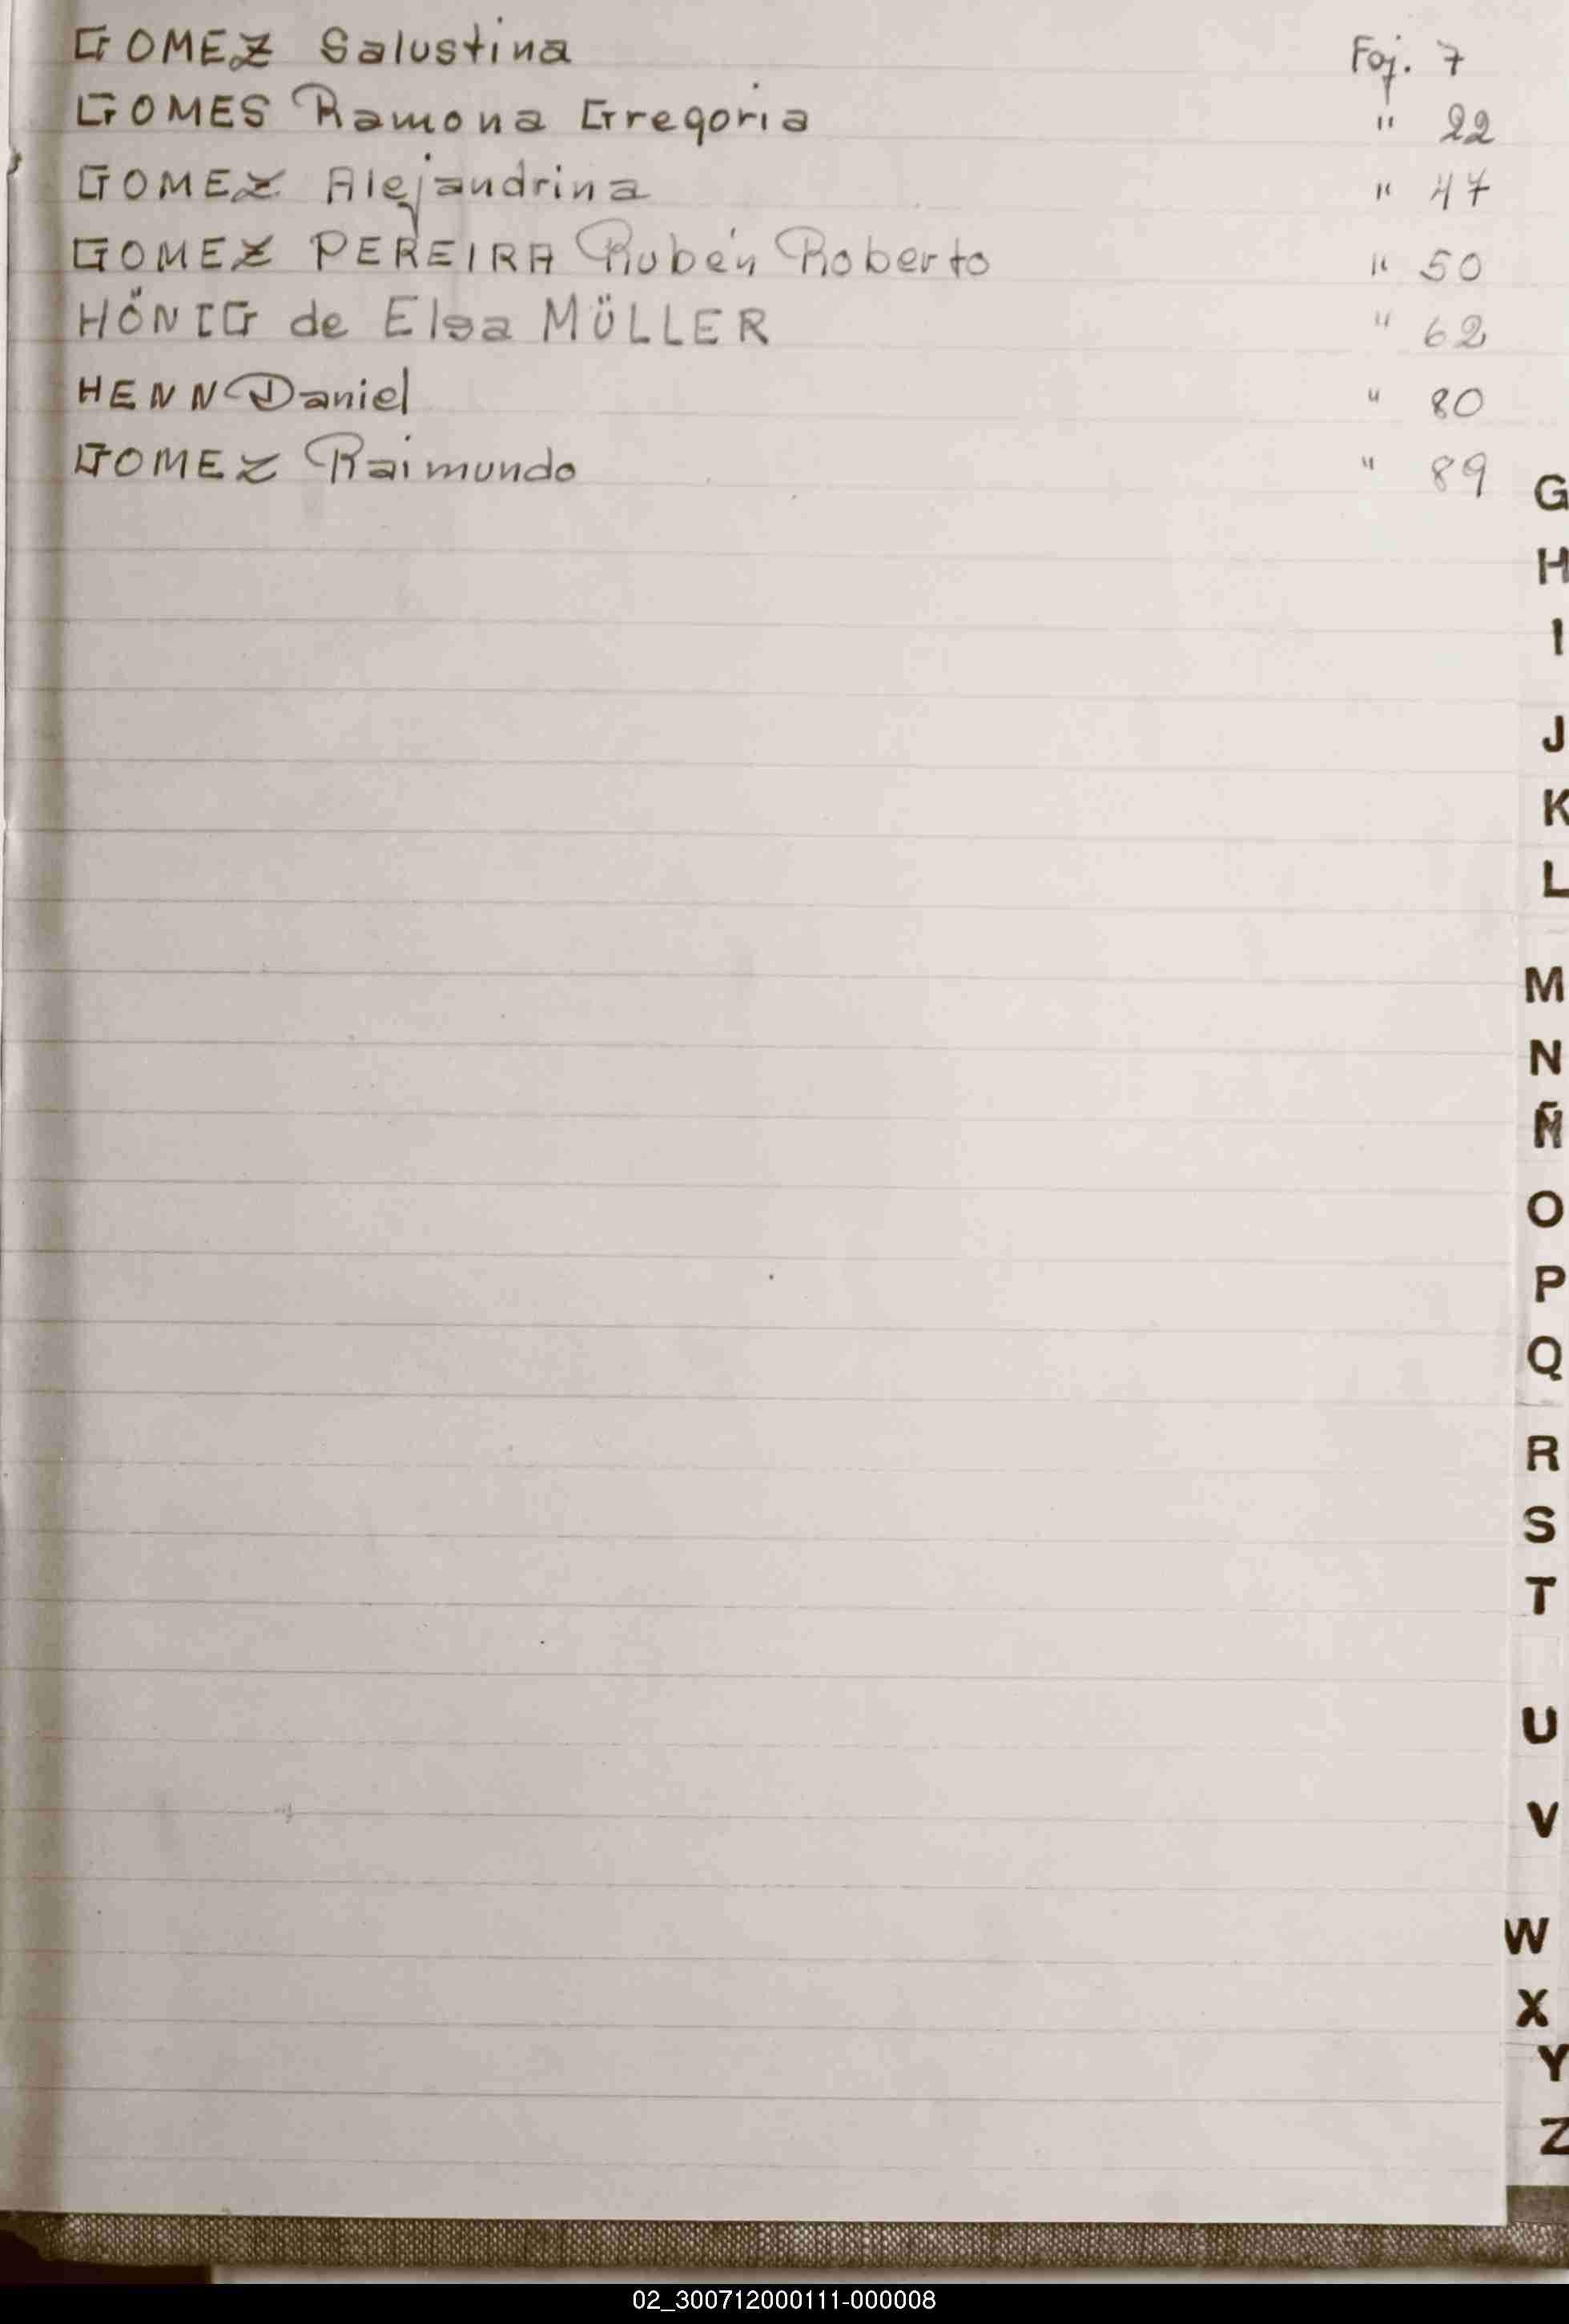 GOMEZ Salustina Foj. 7
GOMES Ramona Gregoria " 22
GOMEZ Alejandrina " 47
GOMEZ PEREIRA Rubén Roberto " 50
HÖNIG de Elsa MÜLLER " 62
HENN Daniel " 80
GOMEZ Raimundo " 89
G
H
I
J
K
L
M
N
Ñ
O
P
Q
R
S
T
U
V
W
X
Y
Z
02_300712000111-000008